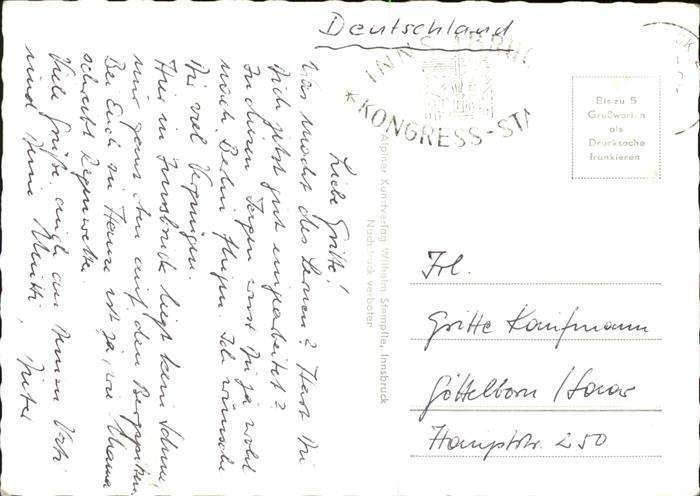 Deutschland
INNSBRUCK
*KONGRESS-STA
Bis zu 5
Grußworten
als
Drucksache
frankieren
Liebe Gritte!
Was macht das Lernen? Hast Du
Dich jetzt gut eingearbeitet?
In diesen Tagen wirst Du ja wohl
nach Berlin fliegen. Ich wünsche
Dir viel Vergnügen.
Hier in Innsbruck liegt kein Schnee,
nur ganz oben auf den Bergspitzen.
Bei Euch zu Hause ist ja, wie Mama
schreibt Regenwetter.
Viele Grüße, auch an Deinen Vati
und Deine Mutti, Dieter
Alpiner Kunstverlag Wilhelm Stempfle, Innsbruck
Nachdruck verboten
Frl.
Gritte Kaufmann
Göttelborn / Saar
Hauptstr. 250